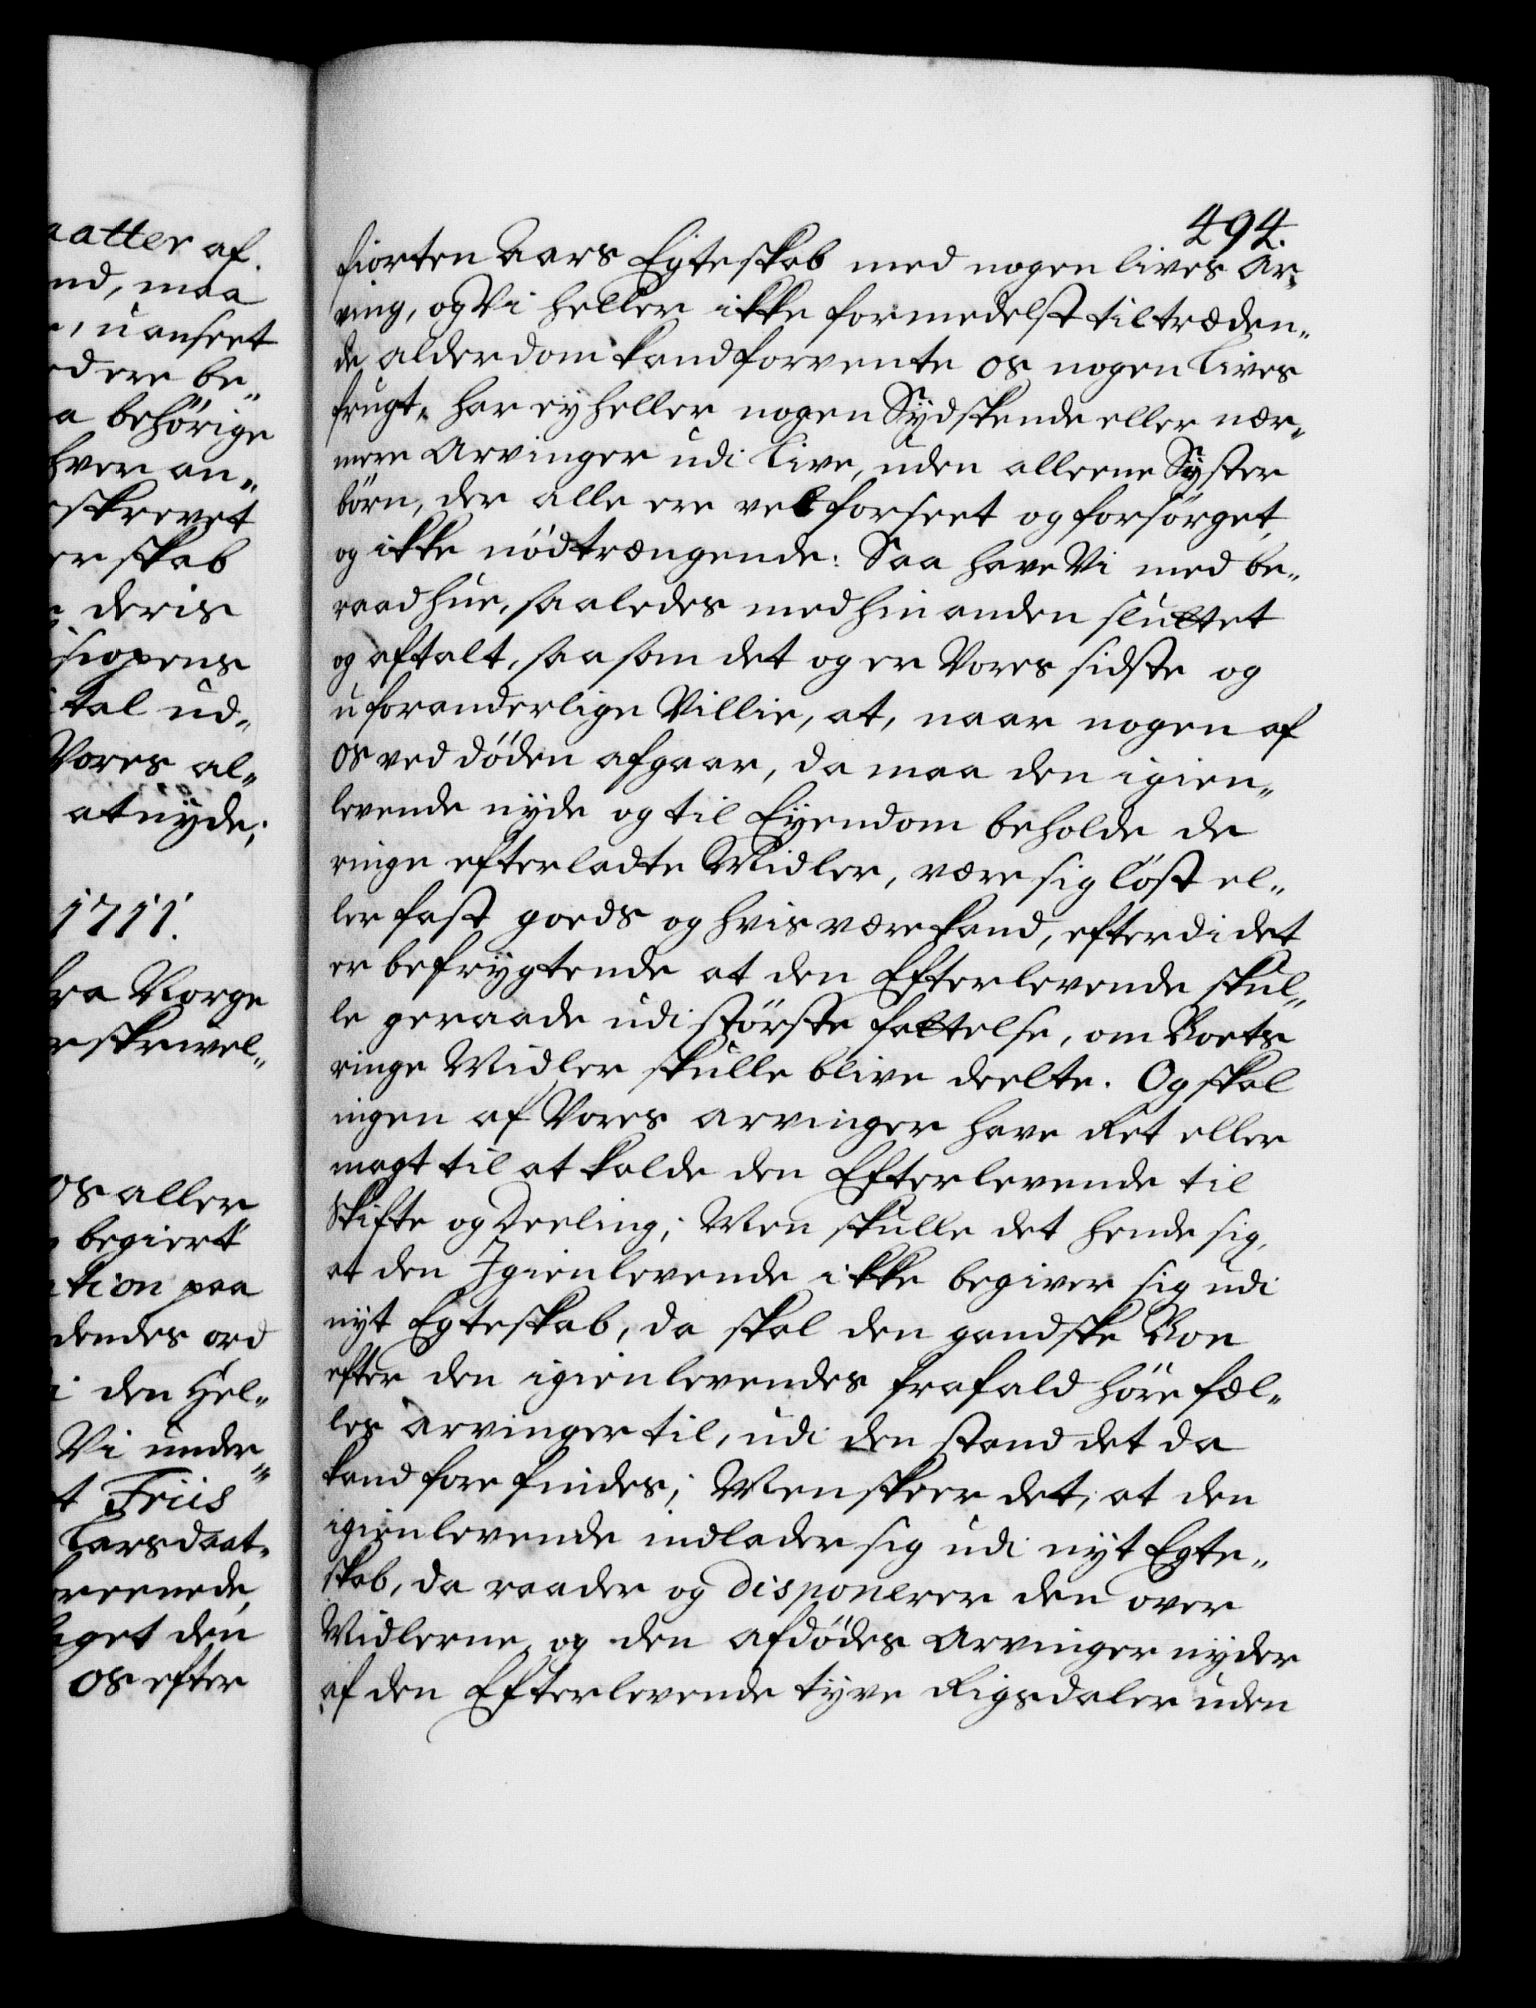 aatter af.
nd, maa
uanseet
edere be„
a behörige
hver an„
eskrevet
erskab
deris
siopens
tal ud„
Vores al„
at nÿde;
1711.
fra Norge
rskrivel„
os aller
begiert
ation paa
dendes ord
i den Hel„
Vi under„
t Friis
Larsdaat„
reenede,
aget den
os efter
494.
fiorten Aars Egteskab med nogen lives Ar„
ving, og Vi heller ikke formedelst tiltræden„
de alderdom kand forvente os nogen Lives
frugt, har ey heller nogen Sÿdskende eller nær„
mere Arvinger udi Live, uden alleene Sÿster
börn, der alle ere vel forseet og forsörget,
og ikke nödtrængende: Saa have Vi med be„
raad hue, saaledes med hinanden sluttet
og aftalt, saasom det og er Vores sidste og
uforanderlige Villie, at, naar nogen af
os ved döden afgaar, da maa den igien„
levende nÿde og til Eÿendom beholde de
ringe efterladte Midler, være sig löst el„
ler fast goeds og hvis være kand, efterdi det
er befrÿgtende at den Efterlevende skul„
le geraade udi störste fattelse, om Boets
ringe Midler skulle blive deelte. Og skal
ingen af Vores arvinger have Ret eller
magt til at kalde den Efterlevende til
Skifte og Deeling; Men skulle det hende sig,
at den Igienlevende ikke begiver sig udi
nÿt Egteskab, da skal den gandske Boe
efter den igienlevendes frafald höre fæl„
les arvinger til, udi den stand det da
kand forefindes; Men skeer det, at den
igienlevende indlader sig udi nÿt Egte„
skab, da raader og disponerer den over
Midlerne, og den afdödes Arvinger nÿder
af den Efterlevende tÿve Rigsdaler uden